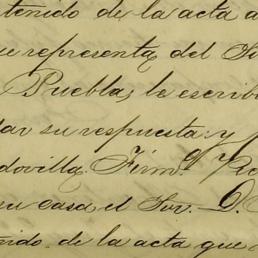 tenido de la acta a
ue representa del Su
Puebla; le escribi
dar su respuesta: y
dovilla. Firmo
su casa el Sor. D.
nido de la acta que